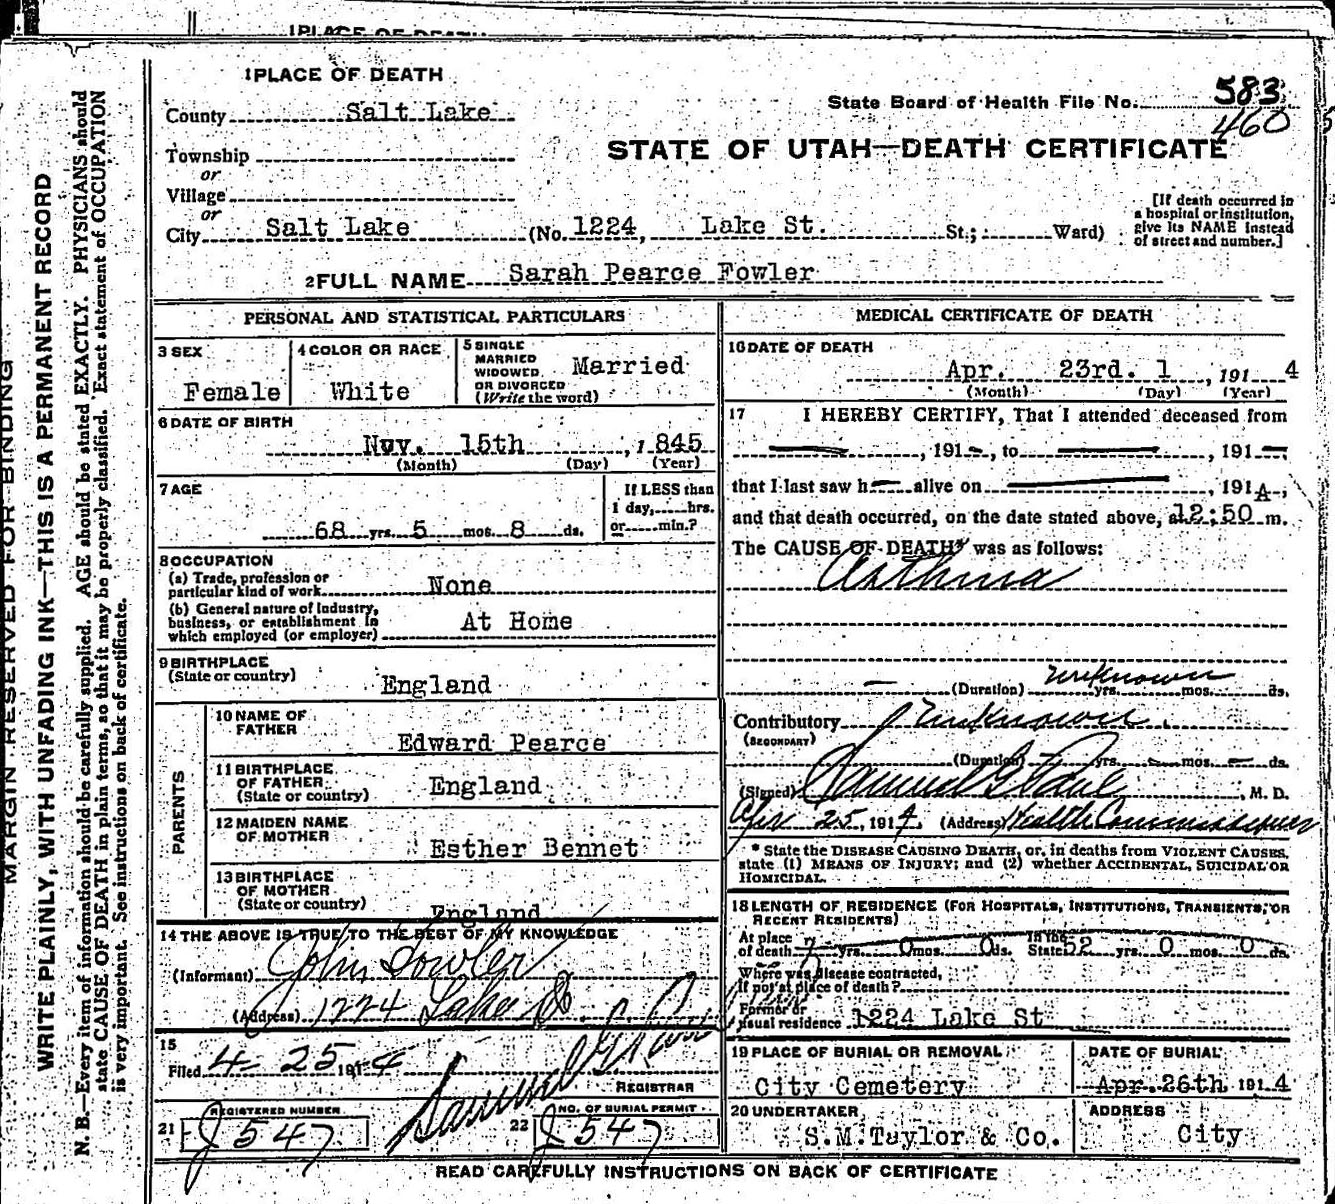 1 PLACE OF DEATH
1 PLACE OF DEATH
State Board of Health File No. 583
460
County Salt Lake
STATE OF UTAH—DEATH CERTIFICATE
Township
or
Village
or
City Salt Lake (No. 1224, Lake St. St.; Ward)
[If death occurred in
a hospital or institution,
give its NAME instead
of street and number.]
2 FULL NAME Sarah Pearce Fowler
PERSONAL AND STATISTICAL PARTICULARS
3 SEX
Female
4 COLOR OR RACE
White
5 SINGLE
MARRIED
WIDOWED
OR DIVORCED
(Write the word)
Married
6 DATE OF BIRTH
Nov. 15th , 1845
(Month) (Day) (Year)
7 AGE
68 yrs. 5 mos. 8 ds.
If LESS than
1 day, hrs.
or min.?
8 OCCUPATION
(a) Trade, profession or
particular kind of work None
(b) General nature of Industry,
business, or establishment in
which employed (or employer) At Home
9 BIRTHPLACE
(State or country)
England
PARENTS
10 NAME OF
FATHER
Edward Pearce
11 BIRTHPLACE
OF FATHER
(State or country)
England
12 MAIDEN NAME
OF MOTHER
Esther Bennet
13 BIRTHPLACE
OF MOTHER
(State or country)
England
14 THE ABOVE IS TRUE TO THE BEST OF MY KNOWLEDGE
(Informant) John Fowler
(Address) 1224 Lake St
15
Filed 4-25 1914
Samuel G Paul
REGISTRAR
21 REGISTERED NUMBER
J 547
22 NO. OF BURIAL PERMIT
J 547
MEDICAL CERTIFICATE OF DEATH
16 DATE OF DEATH
Apr. 23rd. 1 , 191 4
(Month) (Day) (Year)
17 I HEREBY CERTIFY, That I attended deceased from
, 191 , to , 191
that I last saw h alive on , 191 ,
and that death occurred, on the date stated above, at 12:50 m.
The CAUSE OF DEATH* was as follows:
Asthma
(Duration) unknown yrs. mos. ds.
Contributory unknown
(SECONDARY)
(Duration) yrs. mos. ds.
(Signed) Samuel G Paul , M. D.
Apr 25, 1914. (Address) Health Commissioner
* State the DISEASE CAUSING DEATH, or, in deaths from VIOLENT CAUSES,
state (1) MEANS OF INJURY; and (2) whether ACCIDENTAL, SUICIDAL OR
HOMICIDAL.
18 LENGTH OF RESIDENCE (FOR HOSPITALS, INSTITUTIONS, TRANSIENTS, OR
RECENT RESIDENTS)
At place
of death 7 yrs. 0 mos. 0 ds. In the
State 52 yrs. 0 mos. 0 ds.
Where was disease contracted,
If not at place of death?
Former or
usual residence 1224 Lake St
19 PLACE OF BURIAL OR REMOVAL
City Cemetery
DATE OF BURIAL
Apr. 26th 191 4
20 UNDERTAKER
S.M.Taylor & Co.
ADDRESS
City
READ CAREFULLY INSTRUCTIONS ON BACK OF CERTIFICATE
MARGIN RESERVED FOR BINDING
WRITE PLAINLY, WITH UNFADING INK—THIS IS A PERMANENT RECORD
N. B.—Every item of information should be carefully supplied. AGE should be stated EXACTLY. PHYSICIANS should
state CAUSE OF DEATH in plain terms, so that it may be properly classified. Exact statement of OCCUPATION
is very important. See instructions on back of certificate.